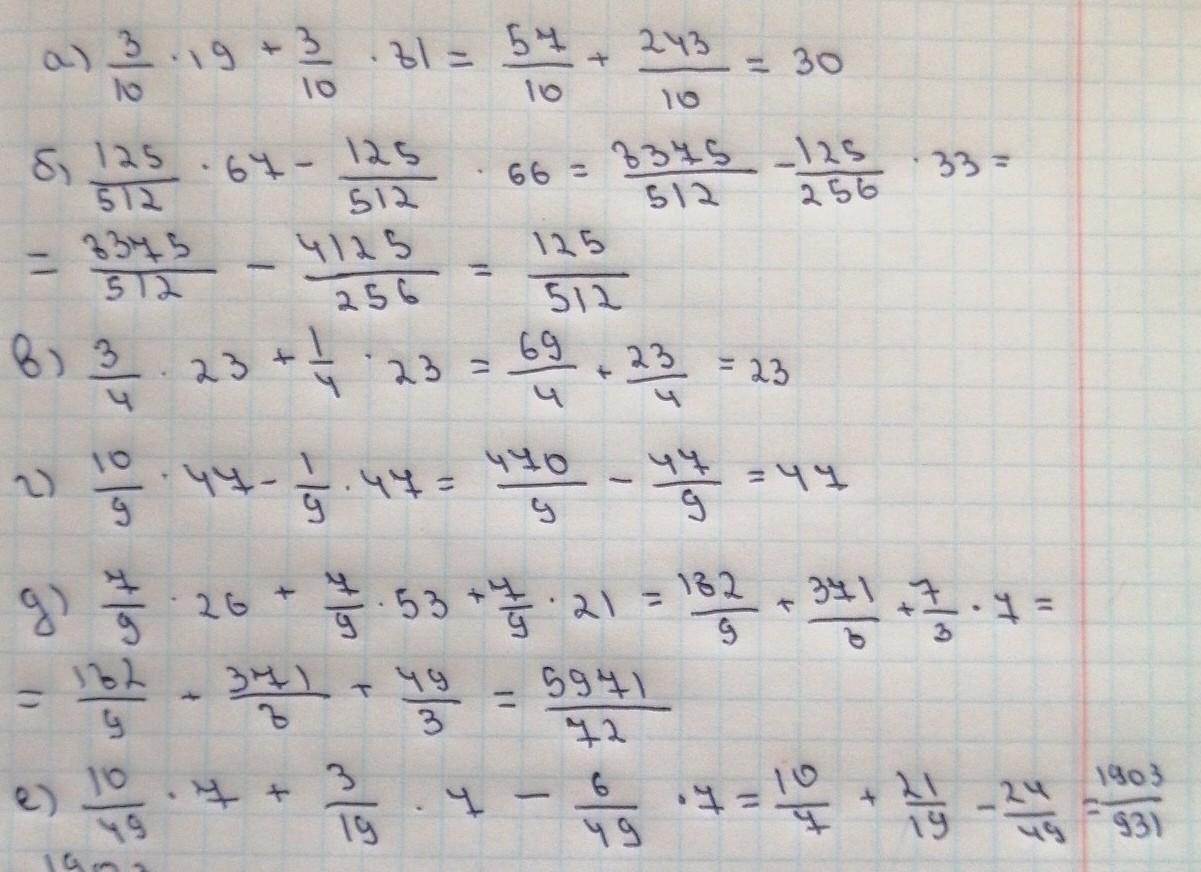 а) 3/10 · 19 + 3/10 · 81 = 57/10 + 243/10 = 30
б) 125/512 · 67 - 125/512 · 66 = 8375/512 - 125/256 · 33 =
= 8375/512 - 4125/256 = 125/512
в) 3/4 · 23 + 1/4 · 23 = 69/4 + 23/4 = 23
г) 10/9 · 47 - 1/9 · 47 = 470/9 - 47/9 = 47
д) 7/9 · 26 + 7/9 · 53 + 7/9 · 21 = 182/9 + 371/8 + 7/3 · 7 =
= 182/9 + 371/8 + 49/3 = 5971/72
е) 10/49 · 7 + 3/19 · 7 - 6/49 · 7 = 10/7 + 21/19 - 24/49 = 1903/931